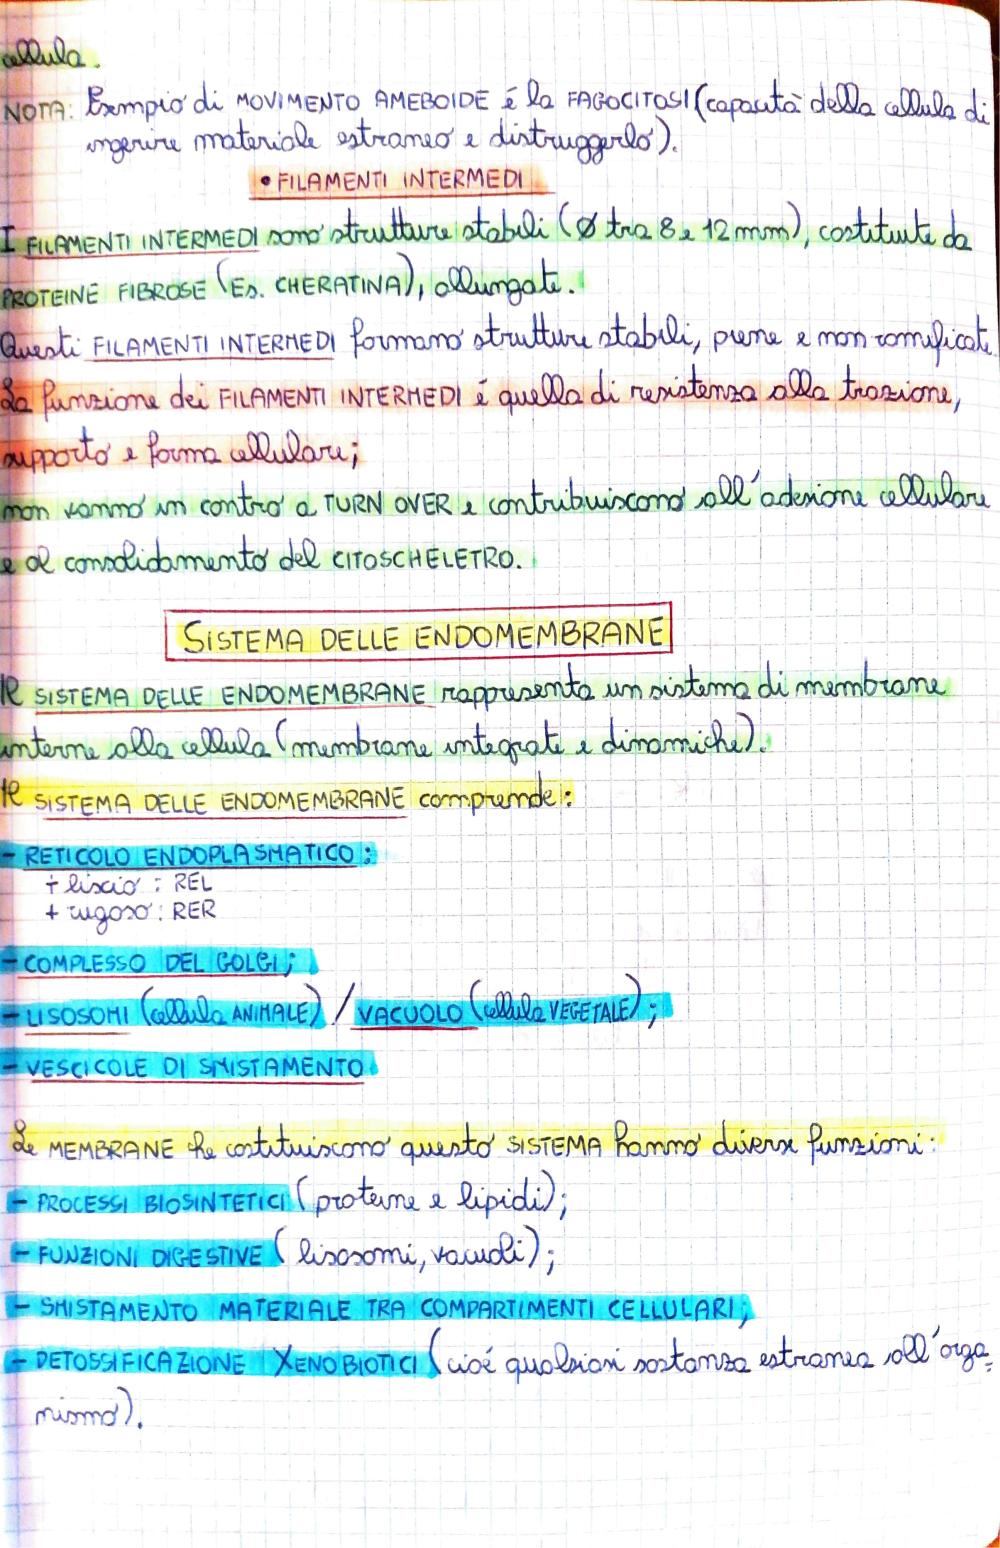 cellula.
NOTA: Esempio di MOVIMENTO AMEBOIDE é la FAGOCITOSI (capacità della cellula di
ingerire materiale estraneo e distruggerlo).
• FILAMENTI INTERMEDI
I FILAMENTI INTERMEDI sono strutture stabili (Ø tra 8 e 12 mm), costituite da
PROTEINE FIBROSE (Es. CHERATINA), allungate.
Questi FILAMENTI INTERMEDI formano strutture stabili, piene e non ramificate.
La funzione dei FILAMENTI INTERMEDI é quella di resistenza alla trazione,
supporto e forma cellulare;
non vanno in contro a TURN OVER e contribuiscono all'adesione cellulare
e al consolidamento del CITOSCHELETRO.
SISTEMA DELLE ENDOMEMBRANE
Il SISTEMA DELLE ENDOMEMBRANE rappresenta un sistema di membrane
interne alla cellula (membrane integrate e dinamiche).
Il SISTEMA DELLE ENDOMEMBRANE comprende:
- RETICOLO ENDOPLASMATICO:
+ liscio: REL
+ rugoso: RER
- COMPLESSO DEL GOLGI;
- LISOSOMI (cellula ANIMALE) / VACUOLO (cellula VEGETALE);
- VESCICOLE DI SMISTAMENTO
Le MEMBRANE che costituiscono questo SISTEMA hanno diverse funzioni:
- PROCESSI BIOSINTETICI (proteine e lipidi);
- FUNZIONI DIGESTIVE (lisosomi, vacuoli);
- SMISTAMENTO MATERIALE TRA COMPARTIMENTI CELLULARI;
- DETOSSIFICAZIONE XENOBIOTICI (cioé qualsiasi sostanza estranea all'orga=
nismo).